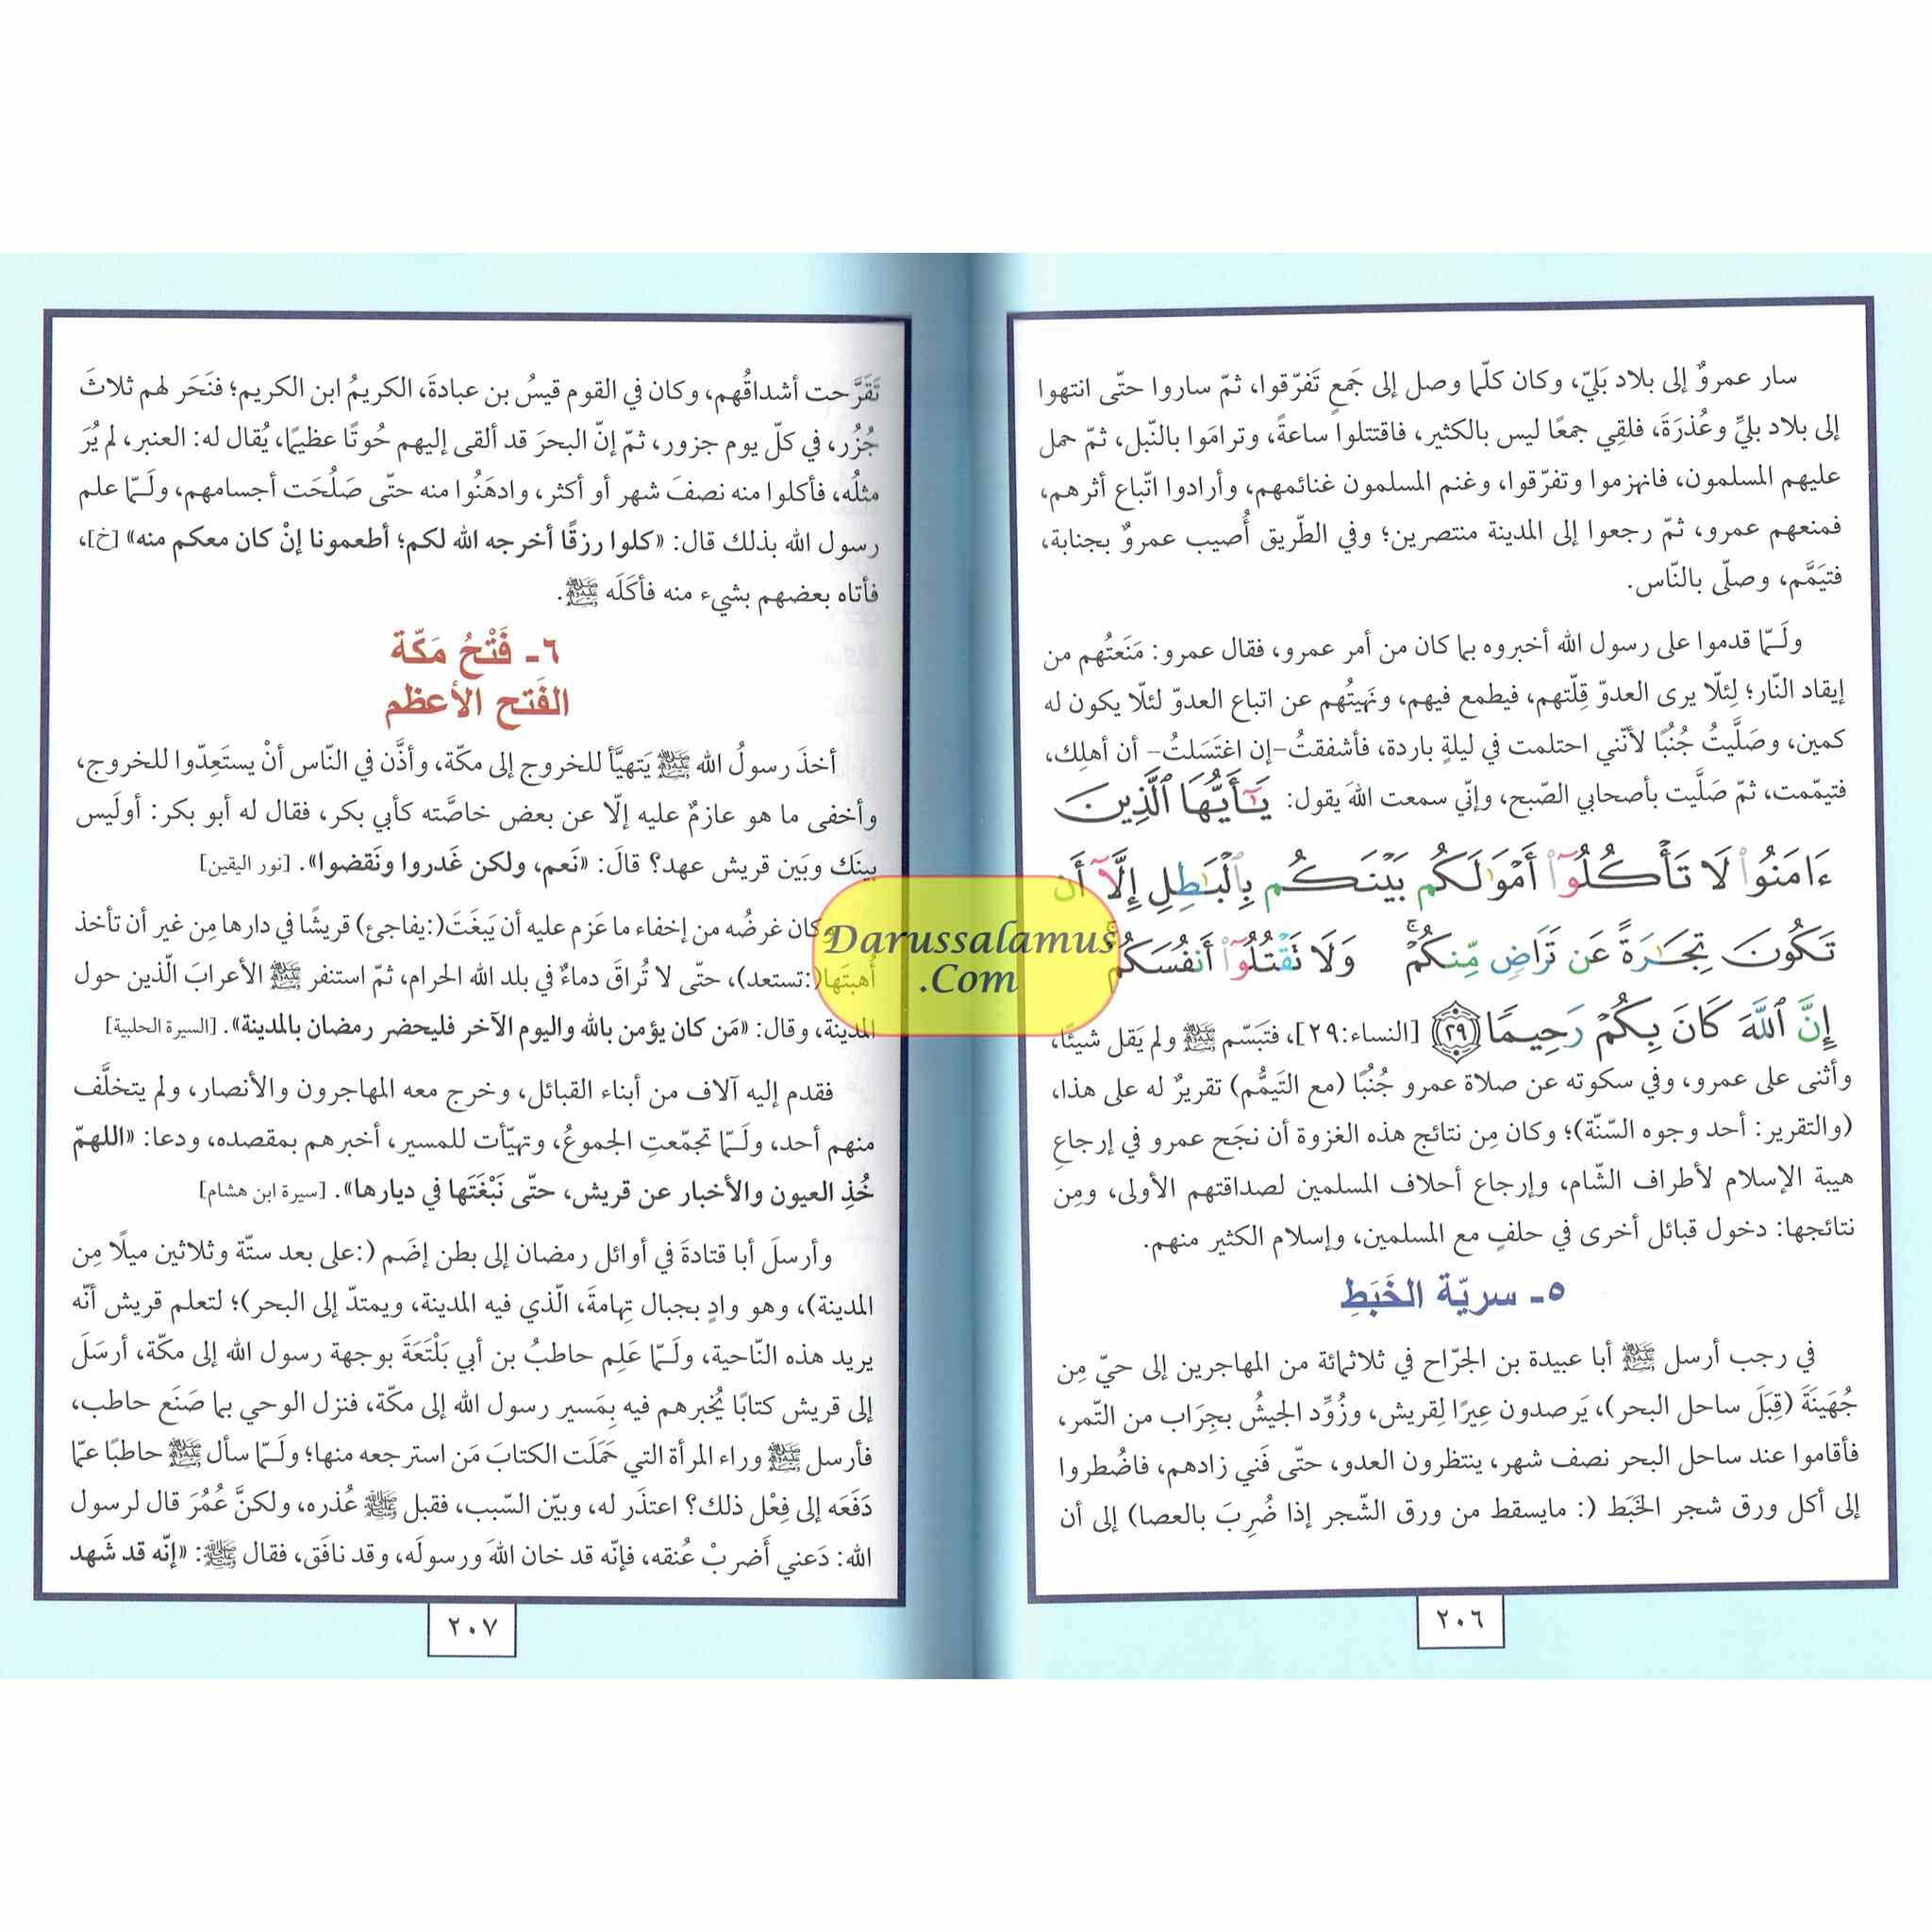 سار عمروٌ إلى بلاد بَليّ، وكان كلّما وصل إلى جَمعٍ تَفرّقوا، ثمّ ساروا حتّى انتهوا
إلى بلاد بليٍّ وعُذرَةَ، فلقِي جمعًا ليس بالكثير، فاقتتلوا ساعةً، وترامَوا بالنّبل، ثمّ حمل
عليهم المسلمون، فانهزموا وتفرّقوا، وغنم المسلمون غنائمهم، وأرادوا اتّباع أثرهم،
فمنعهم عمرو، ثمّ رجعوا إلى المدينة منتصرين؛ وفي الطّريق أُصيب عمروٌ بجنابة،
فتيَمَّم، وصلّى بالنّاس.
ولَـمّا قدموا على رسول الله أخبروه بما كان من أمر عمرو، فقال عمرو: مَنَعتُهم من
إيقاد النّار؛ لِئلّا يرى العدوّ قِلّتهم، فيطمع فيهم، ونَهيتُهم عن اتباع العدوّ لئلّا يكون له
كمين، وصَلَّيتُ جُنُبًا لأنّني احتلمت في ليلةٍ باردة، فأشفقتُ–إن اغتَسَلتُ– أن أهلِك،
فتيمّمت، ثمّ صَلَّيت بأصحابي الصّبح، وإنّي سمعت اللهَ يقول: يَـٰٓأَيُّهَا ٱلَّذِينَ
ءَامَنُوا۟ لَا تَأْكُلُوٓا۟ أَمْوَٰلَكُم بَيْنَكُم بِٱلْبَـٰطِلِ إِلَّآ أَن
تَكُونَ تِجَـٰرَةً عَن تَرَاضٍ مِّنكُمْ ۚ وَلَا تَقْتُلُوٓا۟ أَنفُسَكُمْ ۚ
إِنَّ ٱللَّهَ كَانَ بِكُمْ رَحِيمًا ٢٩ [النساء:٢٩]، فتَبَسّم ﷺ ولم يَقل شيئًا،
وأثنى على عمرو، وفي سكوته عن صلاة عمرو جُنُبًا (مع التَيمُّم) تقريرٌ له على هذا،
(والتقرير: أحد وجوه السّنّة)؛ وكان مِن نتائج هذه الغزوة أن نجَح عمرو في إرجاعِ
هيبة الإسلام لأطراف الشّام، وإرجاع أحلاف المسلمين لصداقتهم الأولى، ومِن
نتائجها: دخول قبائل أخرى في حلفٍ مع المسلمين، وإسلام الكثير منهم.
٥ـ سريّة الخَبَطِ
في رجب أرسل ﷺ أبا عبيدة بن الجرّاح في ثلاثمائة من المهاجرين إلى حيّ مِن
جُهَينَةَ (قِبَلَ ساحل البحر)، يَرصدون عِيرًا لِقريش، وزُوِّد الجيشُ بجِرَاب من التّمر،
فأقاموا عند ساحل البحر نصف شهر، ينتظرون العدو، حتّى فَني زادهم، فاضُطروا
إلى أكل ورق شجر الخَبَط (: مايسقط من ورق الشّجر إذا ضُرِبَ بالعصا) إلى أن
٢٠٦
تَقَرَّحت أشداقُهم، وكان في القوم قيسُ بن عبادةَ، الكريمُ ابن الكريم؛ فنَحَر لهم ثلاثَ
جُزُر، في كلّ يوم جزور، ثمّ إنّ البحرَ قد ألقى إليهم حُوتًا عظيمًا، يُقال له: العنبر، لم يُرَ
مثلُه، فأكلوا منه نصفَ شهر أو أكثر، وادهَنُوا منه حتّى صَلُحَت أجسامهم، ولَـمّا علم
رسول الله بذلك قال: «كلوا رزقًا أخرجه الله لكم؛ أطعمونا إنْ كان معكم منه» [خ]،
فأتاه بعضهم بشيء منه فأكَلَه ﷺ.
٦ـ فَتْحُ مَكّة
الفَتح الأعظم
أخذَ رسولُ الله ﷺ يَتهيَّأ للخروج إلى مكّة، وأذَّن في النّاس أنْ يستَعِدّوا للخروج،
وأخفى ما هو عازمٌ عليه إلّا عن بعض خاصَّته كأبي بكر، فقال له أبو بكر: أولَيس
بينَك وبَين قريش عهد؟ قالَ: «نَعم، ولكن غَدروا ونَقضوا». [نور اليقين]
وكان غرضُه من إخفاء ما عَزم عليه أن يَبغَتَ(:يفاجئ) قريشًا في دارها مِن غير أن تأخذ
أُهبتَها(:تستعد)، حتّى لا تُراقَ دماءٌ في بلد الله الحرام، ثمّ استنفر ﷺ الأعرابَ الّذين حول
المدينة، وقال: «مَن كان يؤمن بالله واليوم الآخر فليحضر رمضان بالمدينة». [السيرة الحلبية]
فقدم إليه آلاف من أبناء القبائل، وخرج معه المهاجرون والأنصار، ولم يتخلَّف
منهم أحد، ولَـمّا تجمّعتِ الجموعُ، وتهيّأت للمسير، أخبرهم بمقصده، ودعا: «اللهمّ
خُذِ العيون والأخبار عن قريش، حتّى نَبْغَتَها في ديارها». [سيرة ابن هشام]
وأرسلَ أبا قتادةَ في أوائل رمضان إلى بطن إضَم (:على بعد ستّة وثلاثين ميلًا مِن
المدينة)، وهو وادٍ بجبال تِهامةَ، الّذي فيه المدينة، ويمتدّ إلى البحر)؛ لتعلم قريش أنّه
يريد هذه النّاحية، ولَـمّا عَلِم حاطبُ بن أبي بَلْتَعَةَ بوجهة رسول الله إلى مكّة، أرسَلَ
إلى قريش كتابًا يُخبرهم فيه بِمَسير رسول الله إلى مكّة، فنزل الوحي بما صَنَع حاطب،
فأرسل ﷺ وراء المرأة التي حَمَلَت الكتابَ مَن استرجعه منها؛ ولَـمّا سأل ﷺ حاطبًا عمّا
دَفَعَه إلى فِعْل ذلك؟ اعتذَر له، وبيّن السّبب، فقبل ﷺ عُذره، ولكنَّ عُمُرَ قال لرسول
الله: دَعني أَضربْ عُنقه، فإنّه قد خان اللهَ ورسولَه، وقد نافَق، فقال ﷺ: «إنّه قد شَهد
٢٠٧
Darussalamus
.Com